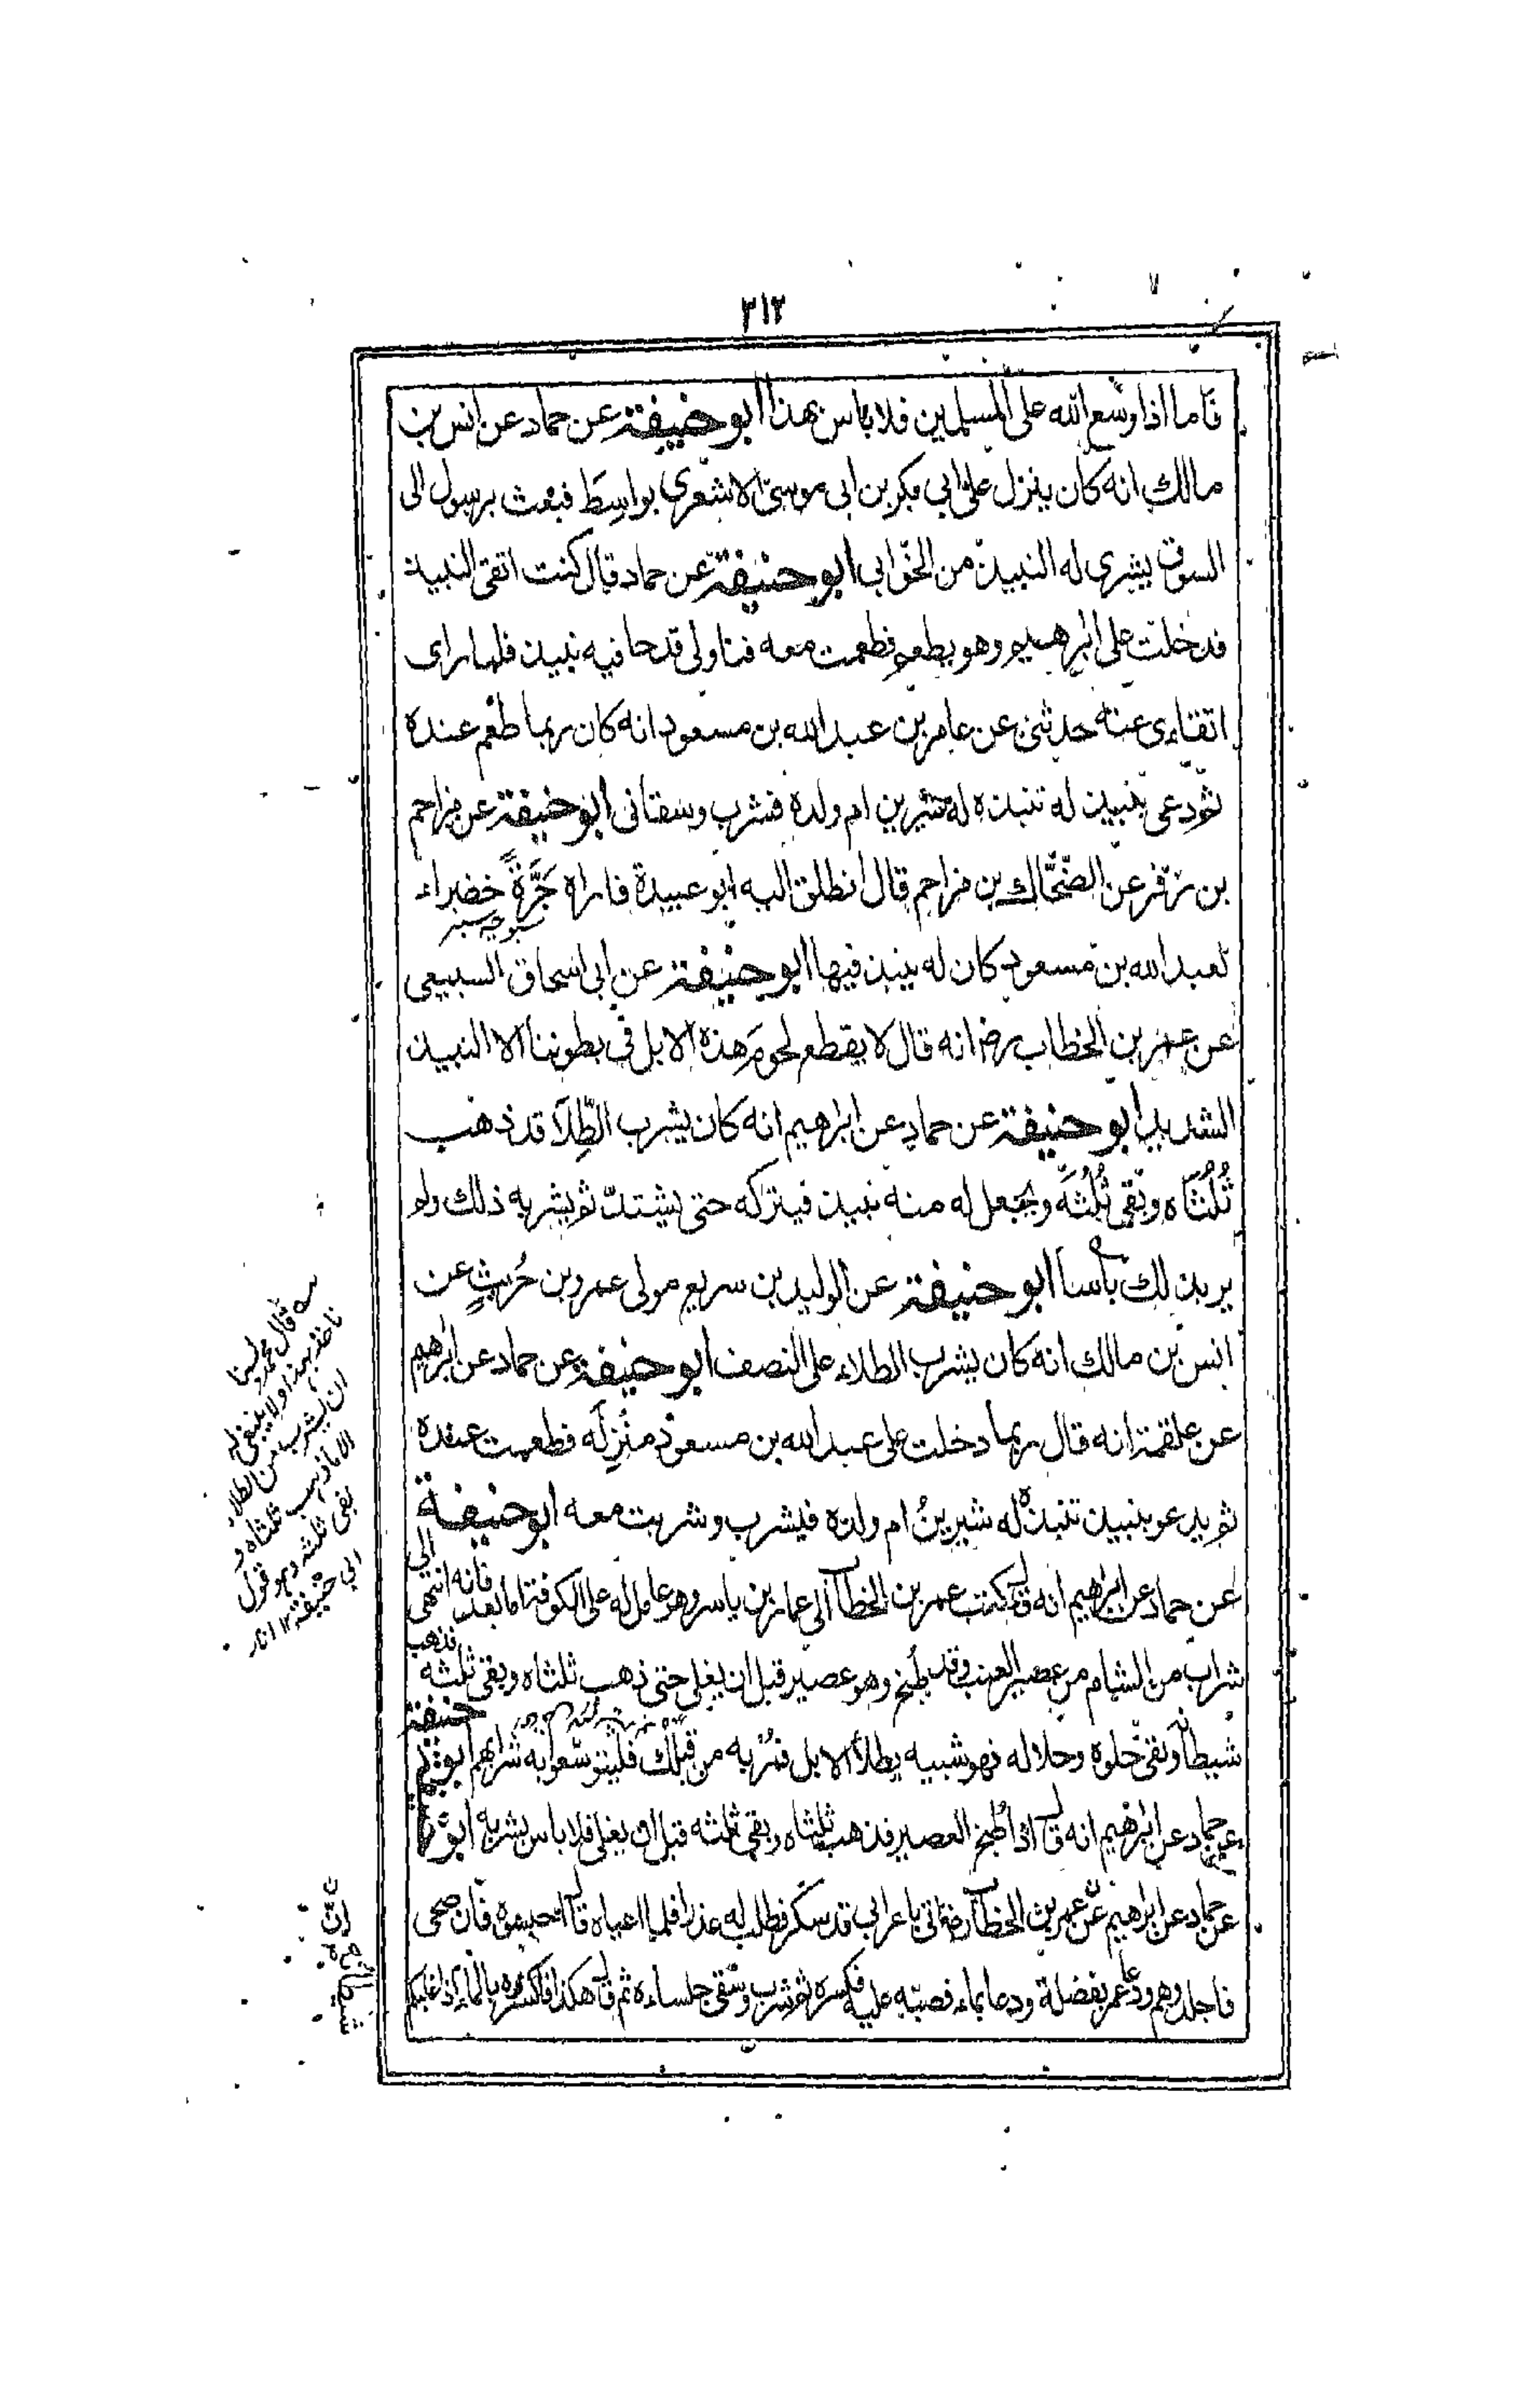 ٣١٢
فاما اذا وسع الله على المسلمين فلا باس بهذا ابو حنيفة عن حماد عن انس بن
مالك انه كان ينزل على ابي بكر بن ابى موسى الاشعرى بواسط فبعث برسول الى
السوق يشترى له النبيذ من الخوابى ابو حنيفة عن حماد قال كنت اتقى النبيذ
فدخلت على ابرهيم وهو يطعم فطعمت معه فناولى قدحا فيه نبيذ فلما راى
اتقاءى عنه حدثنى عن عامر بن عبد الله بن مسعود انه كان ربما طعم عنده
ثم دعى بنبيذ له تنبذه له شيرين ام ولده فشرب وسقانى ابو حنيفة عن مزاحم
بن زفر عن الضحّاك بن مزاحم قال انطلق اليه ابو عبيدة فاراه جَرَّةً خضراء
سبوچه سبز
لعبد الله بن مسعود كان له ينبذ فيها ابو حنيفة عن ابى اسحاق السبيعى
عن عمر بن الخطاب رض انه قال لا يقطع لحوم هذه الابل فى بطوننا الا النبيذ
الشديد ابو حنيفة عن حماد عن ابرهيم انه كان يشرب الطِّلَآ قد ذهب
ثُلُثَاه وبقى ثُلُثَه ويجعل له منه نبيذ فيتركه حتى يشتدّ ثم يشربه ذلك ولم
ير بذلك بأسا ابو حنيفة عن الوليد بن سريع مولى عمرو بن حُريثٍ عن
انس بن مالك انه كان يشرب الطلاء على النصف ابو حنيفة عن حماد عن ابرهيم
عن علقمة انه قال ربما دخلت على عبد الله بن مسعود منزله فطعمت عنده
ثم يدعو بنبيذ تنبذه له شيرينُ ام ولده فيشرب وشربت معه ابو حنيفة
عن حماد عن ابرهيم انه قال كتب عمر بن الخطاب الى عمار بن ياسر وهو عامل له على الكوفة اما بعد فانه انتهى الى
شراب من الشام من عصير العنب وقد طبخ وهو عصير قبل ان يغلى حتى ذهب ثلثاه وبقى ثلثه فذهب
شيطانه وبقى حلوه وحلاله فهو شبيه بطلاء الابل فمُرْ به من قِبلك فليتوسّعوا به شرابهم ابو حنيفة
عن حماد عن ابرهيم انه قال اذا طُبخ العصير فذهب ثلثاه وبقى ثلثه قبل ان يغلى فلا باس بشربه ابو
عن حماد عن ابرهيم عن عمر بن الخطاب رض اتى باعرابى قد سكر فطلب له عذرا فلما اعياه قال احبسوه فان صحى
فاجلدوهم ودعا عمر بفضلة ودعا بماء فصبّه عليه فكسره ثم شرب وسقى جلساءه ثم قال هكذا فاكسروه بالماء اذا غلبكم
قال محمد ولسنا
ناخذ بهذا ولا ينبغى له
ان يشرب من الطلاء
الا ما ذهب ثلثاه و
بقى ثلثه وهو قول
ابي حنيفة ١٢ اثار